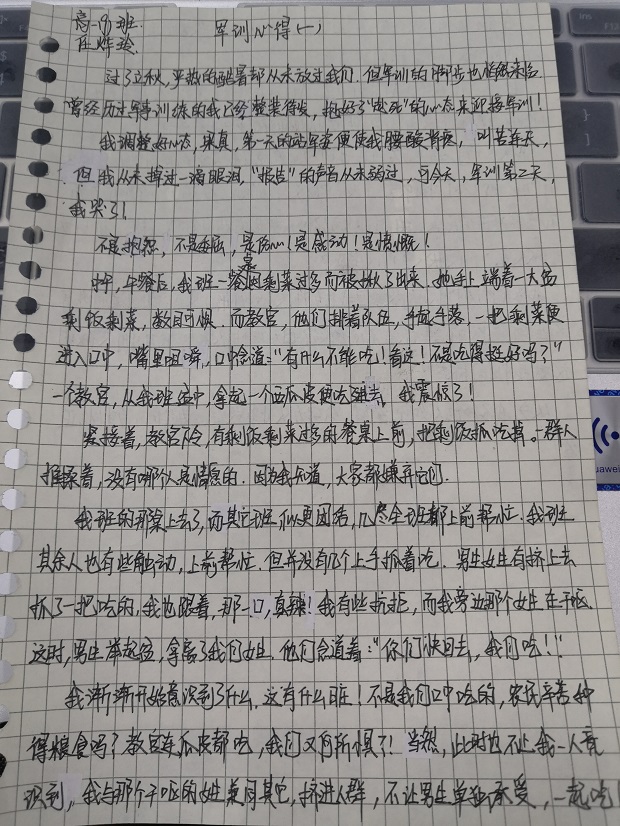 高一9班
军训心得(一)
过了立秋,平城的酷暑却从未放过我们.但军训的脚步也悄然来临
曾经历过军事训练的我已经整装待发,抱好了"必死"的心态来迎接军训!
我调整好心态,果真,第一天的站军姿便使我腰酸背疼,叫苦连天,
但我从未掉过一滴眼泪,"报告"的声音从未弱过,可今天,军训第二天,
我哭了!
不是抱怨,不是委屈,是伤心!是感动!是愤慨!
中午,午餐后,我班一餐桌因剩菜过多而被揪了出来.她手上端着一大盆
剩饭剩菜,数目可惧.而教官,他们排着队伍,手起手落,一把剩菜便
进入口中,嘴里咀嚼,口中念道:"有什么不能吃!看这!不是吃得挺好吗?"
一个教官,从我班盆中,拿起一个西瓜皮便吃进去,我震惊了!
紧接着,教官下令,有剩饭剩菜过多的餐桌上前,把剩饭抓吃掉。一群人
推搡着,没有哪个人是情愿的.因为我知道,大家都嫌弃它们.
我班的那桌上去了,而其它班似更团结,几尽全班都上前帮忙.我班
其余人也有些触动,上前帮忙.但并没有几个上手抓着吃.男生女生有挤上去
抓了一把吃的,我也跟着,那一口,真辣!我有些抗拒,而我旁边那个女生在干呕.
这时,男生举起盆,拿离了我们女生.他们念道着:"你们快回去,我们吃!"
我渐渐开始意识到了什么.这有什么脏!不是我们口中吃的,农民辛苦种
得粮食吗?教官连瓜皮都吃,我们又何所惧了!当然,此时也不止我一人意
识到,我与那个干呕的女生兼同其它,挤进人群,不让男生单独承受,一起吃!